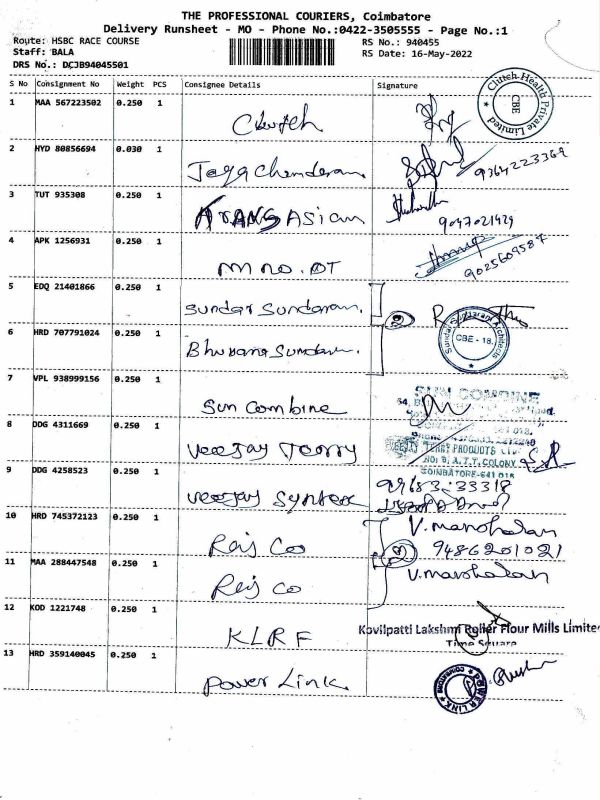 THE PROFESSIONAL COURIERS, Coimbatore
Delivery Runsheet - MO - Phone No.:0422-3505555 - Page No.:1
Route: HSBC RACE COURSE
RS No.: 940455
Staff: BALA
RS Date: 16-May-2022
DRS No.: DCJB94045501
S No Consignment No Weight PCS Consignee Details Signature
1 MAA 567223502 0.250 1 Clutch
Clutch Health Private Limited CBE
2 HYD 80856694 0.030 1 Jaya Chanderan
9364223369
3 TUT 935308 0.250 1 TRANS ASian
9047021429
4 APK 1256931 0.250 1
9025609587
5 EDQ 21401866 0.250 1 Sundar Sundaram.
6 HRD 707791024 0.250 1 Bhuvana Sundaram.
Sundar Sundaram Architects CBE - 18.
7 VPL 938999156 0.250 1 Sun Combine
SUN COMBINE
8 DDG 4311669 0.250 1 Veejay Terry
VEEJAY TERRY PRODUCTS LTD
NO: 9, A.T.T. COLONY
COIMBATORE-641 018
9 DDG 4258523 0.250 1 Veejay Syntex
99683-33318
10 HRD 745372123 0.250 1 Raj Co
V. manohalan
9486201021
11 MAA 288447548 0.250 1 Raj Co
V. manohalan
12 KOD 1221748 0.250 1 KLRF
Kovilpatti Lakshmi Roller Flour Mills Limited
Time Square
13 HRD 359140045 0.250 1 Power Link.
POWER LINK COIMBATORE